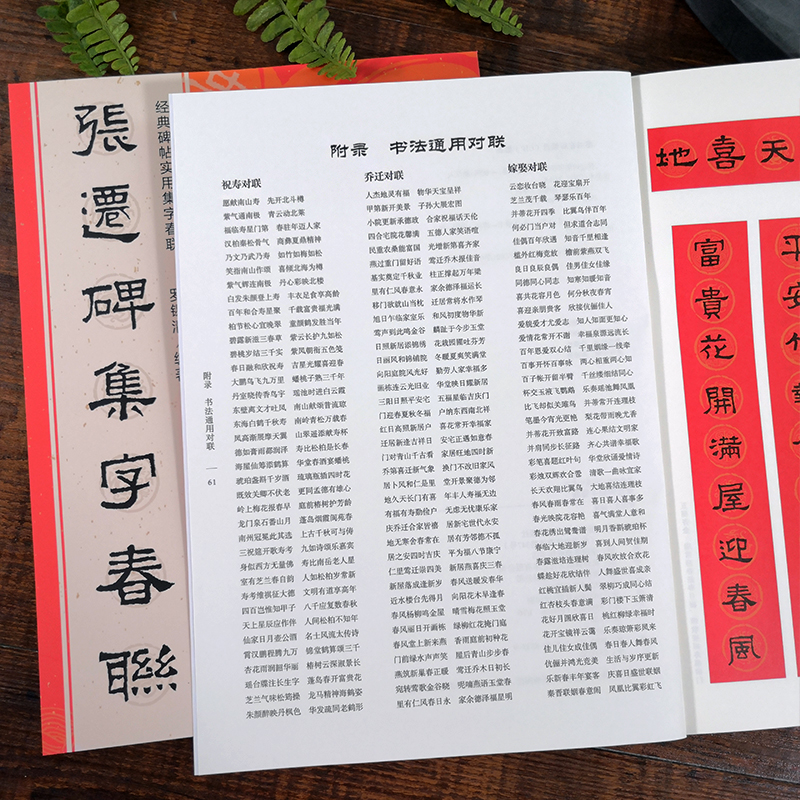 張遷碑集字春聯
经典碑帖实用集字春联
附录　书法通用对联
祝寿对联
愿献南山寿　先开北斗樽
紫气通南极　青云动北莱
福临寿星门第　春驻年迈人家
汉柏秦松骨气　商彝夏鼎精神
乃文乃武乃寿　如竹如梅如松
笑指南山作颂　喜倾北海为樽
紫气辉连南极　丹心彩映北楼
白发朱颜登上寿　丰衣足食享高龄
百年和合寿星聚　千载富贵福光满
柏节松心宜晚翠　童颜鹤发胜当年
碧露新滋三春草　紫云长护九如松
碧桃岁结三千实　紫凤朝衔五色笺
春日融和欣祝寿　吉星光耀喜迎春
大鹏鸟飞九万里　蟠桃子熟三千年
丹室晓传青鸟字　瑶池时进白云霞
东壁离文才吐凤　南山献颂昔流琼
东海白鹤千秋寿　南岭青松万载春
凤高渐展摩天翼　山翠遥添献寿杯
德如膏雨都润泽　寿比松柏是长春
海屋仙筹添鹤算　华堂春酒宴蟠桃
琥珀盏斟千岁酒　琉璃瓶插四时花
既效关卿不伏老　更同孟德有雄心
岭上梅花报春早　庭前椿树护芳龄
龙门泉石香山月　蓬岛烟霞阆苑春
南州冠冕此其选　上古千秋可与俦
三祝筵开歌寿考　九如诗颂乐嘉宾
身似西方无量佛　寿比南岳老人星
室有芝兰春自韵　人如松柏岁常新
寿考维祺征大德　文明有道享高年
四百岂惟知甲子　八千应复数春秋
天上星辰应作伴　人间松柏不知年
仙家日月壶公酒　名士风流太传诗
霄汉鹏程腾九万　锦堂鹤算颂三千
杏花雨润韶华丽　椿树云深淑景长
瑶台牒注长生字　蓬岛春开富贵花
芝兰气味松筠操　龙马精神海鹤姿
朱颜醉映丹枫色　华发疏同老鹤形
乔迁对联
人杰地灵有福　物华天宝呈祥
甲第新开美景　子孙大展宏图
小院更新承德政　合家祝福话天伦
四合宅院花馨满　五德人家笑语喧
民重农桑能富国　光增新第喜齐家
燕过重门留好语　莺迁乔木报佳音
基实奠定千秋业　柱正撑起万年梁
里有仁风春意永　家余德泽福运长
移门欲就山当枕　迁居常将水作琴
旭日乍临家室乐　和风初度物华新
莺声到此鸣金谷　麟趾于今步玉堂
日照新居添锦绣　花栽园圃吐芬芳
日丽风和锦铺院　冬暖夏爽笑满堂
向阳庭院风光好　勤劳人家幸福多
画栋连云光旧业　华堂映日耀新居
三阳日照平安宅　五福星临吉庆门
门迎春夏秋冬福　户纳东西南北祥
红日高照新居户　喜花常开幸福家
迁居新逢吉祥日　安宅正遇如意春
门对青山千古看　家居旺地四时新
乔第喜迁新气象　换门不改旧家风
居卜风和仁是里　堂开景聚德为邻
地久天长门有喜　年丰人寿福无边
有福有寿勤俭户　无虑无忧康乐家
庆乔迁合家皆德　居新宅世代永安
地无寒舍春常在　居有芳邻德不孤
居之安四时吉庆　平为福八节康宁
仁里莺迁崇四美　新居燕喜庆三春
新屋落成逢新岁　春风送暖发春华
近水楼台先得月　向阳花木早逢春
春风杨柳鸣金屋　晴雪梅花照玉堂
春风丽日开画栋　绿柳红花掩门庭
春风堂上新来燕　香雨庭前初种花
门前绿水声声笑　屋后青山步步春
燕筑新巢春正暖　莺迁乔木日初长
宛转莺歌金谷晓　呢喃燕语玉堂春
里有仁风春日永　家余德泽福星明
嫁娶对联
云恋妆台晓　花迎宝扇开
芝兰茂千载　琴瑟乐百年
并蒂花开四季　比翼鸟伴百年
何必门当户对　但求道合志同
偶倡百年欣遇　知音千里相逢
槛外红梅竞放　檐前紫燕双飞
良日良辰良偶　佳男佳女佳缘
同德同心同志　知寒知暖知音
喜共花容月色　何分秋夜春宵
喜迎亲朋贵客　欣接伉俪佳人
爱貌爱才尤爱志　知人知面更知心
爱情花常开不谢　幸福泉源远流长
百年恩爱双心结　千里姻缘一线牵
百事开怀百事咏　两心相重两心知
百子帐开留半臂　千丝缕细结同心
杯交玉液飞鹦鹉　乐奏瑶池舞凤凰
比飞却似关雎鸟　并蒂常开连理枝
笔墨今宵光更艳　梨花带雨晚尤香
并蒂花开致富路　连心果结文明家
并肩同步长征路　齐心共谱幸福歌
彩笔喜题红叶句　华堂欣诵爱情诗
彩烛双辉欢合卺　清歌一曲咏宜家
长天欢翔比翼鸟　大地喜结连理枝
春风春雨春常在　喜日喜人喜事多
春光映院花容艳　喜气满堂人意和
春花绣出鸳鸯谱　明月香斟琥珀杯
春临大地迎新岁　喜到人间贺佳期
春露滋培连理树　春风吹放合欢花
蝶趁好花欣结伴　人舞盛世喜成亲
红桃宜插新人鬓　翠柳巧成同心结
红杏枝头春意满　彩门楼下玉箫清
花好月圆欣喜日　桃红柳绿幸福时
花开宝镜祥云霭　乐奏琼箫彩凤来
佳儿佳女成佳偶　春日春人舞春风
伉俪并鸿光竞美　生活与岁序更新
乐新春丰年宴客　庆喜日盛世联姻
秦晋联姻春意闹　凤凰比翼彩虹飞
附录　书法通用对联　61
天喜地
富貴花開滿屋迎春風
平安竹